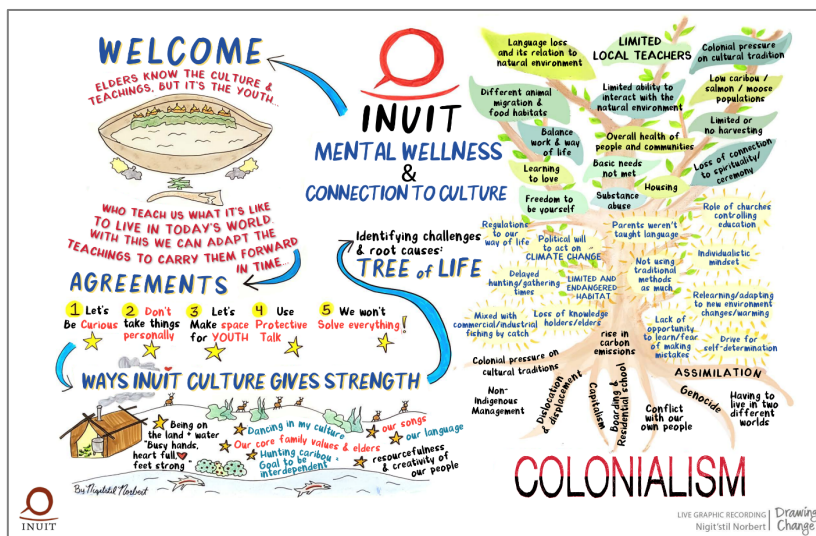 WELCOME
ELDERS KNOW THE CULTURE &
TEACHINGS, BUT IT'S THE YOUTH...
WHO TEACH US WHAT IT'S LIKE
TO LIVE IN TODAY'S WORLD.
WITH THIS WE CAN ADAPT THE
TEACHINGS TO CARRY THEM FORWARD
IN TIME...
AGREEMENTS
1 Let's
Be Curious
2 Don't
take things
personally
3 Let's
Make space
for YOUTH
4 Use
Protective
Talk
5 We won't
Solve everything!
WAYS INUIT CULTURE GIVES STRENGTH
Being on
the land + water
"Busy hands,
heart full,
feet strong
Dancing in my culture
Our core family values & elders
Hunting caribou -
Goal to be
interdependent
our songs
our language
resourcefulness
& creativity of
our people
By Nigitstil Norbert
INUIT
INUIT
MENTAL WELLNESS
&
CONNECTION TO CULTURE
Identifying challenges
& root causes:
TREE of LIFE
Language loss
and its relation to
natural environment
LIMITED
LOCAL TEACHERS
Colonial pressure
on cultural tradition
Different animal
migration &
food habitats
Limited ability to
interact with the
natural environment
Low caribou /
salmon / moose
populations
Balance
work & way
of life
Overall health of
people and communities
Limited or
no harvesting
Learning
to love
Basic needs
not met
Housing
Loss of connection
to spirituality/
ceremony
Freedom to
be yourself
Substance
abuse
Regulations
to our
way of life
Political will
to act on
CLIMATE CHANGE
Parents weren't
taught language
Role of churches
controlling
education
Delayed
hunting/gathering
times
LIMITED AND
ENDANGERED
HABITAT
Not using
traditional
methods
as much
Individualistic
mindset
Mixed with
commercial/industrial
fishing by catch
Loss of knowledge
holders/elders
Relearning/adapting
to new environment
changes/warming
Lack of
opportunity
to learn/fear
of making
mistakes
Drive for
self-determination
Colonial pressure on
cultural traditions
rise in
carbon
emissions
ASSIMILATION
Non-
Indigenous
Management
Dislocation
& displacement
Capitalism
boarding &
Residential school
Conflict
with our
own people
Genocide
Having to
live in two
different
worlds
COLONIALISM
LIVE GRAPHIC RECORDING
Nigit'stil Norbert
Drawing
Change